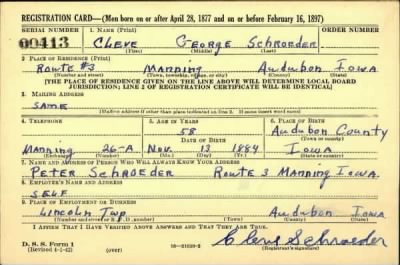 REGISTRATION CARD—(Men born on or after April 28, 1877 and on or before February 16, 1897)
SERIAL NUMBER 1. NAME (Print) ORDER NUMBER
00413 CLEVE GEORGE SCHROEDER
(First) (Middle) (Last)
2. PLACE OF RESIDENCE (Print)
Route #3 Manning Audubon Iowa
(Number and street) (Town, township, village, or city) (County) (State)
[THE PLACE OF RESIDENCE GIVEN ON THE LINE ABOVE WILL DETERMINE LOCAL BOARD
JURISDICTION; LINE 2 OF REGISTRATION CERTIFICATE WILL BE IDENTICAL]
3. MAILING ADDRESS
SAME
[Mailing address if other than place indicated on line 2. If same insert word same]
4. TELEPHONE 5. AGE IN YEARS 6. PLACE OF BIRTH
58 Audubon County
DATE OF BIRTH (Town or county)
Manning 26-A Nov. 13 1884 Iowa
(Exchange) (Number) (Mo.) (Day) (Yr.) (State or country)
7. NAME AND ADDRESS OF PERSON WHO WILL ALWAYS KNOW YOUR ADDRESS
PETER SCHROEDER Route 3 Manning Iowa.
8. EMPLOYER'S NAME AND ADDRESS
SELF
9. PLACE OF EMPLOYMENT OR BUSINESS
Lincoln Twp Audubon Iowa
(Number and street or R. F. D. number) (Town) (County) (State)
I AFFIRM THAT I HAVE VERIFIED ABOVE ANSWERS AND THAT THEY ARE TRUE.
D. S. S. Form 1
(Revised 4-1-42) (over) Cleve Schroeder
(Registrant's signature)